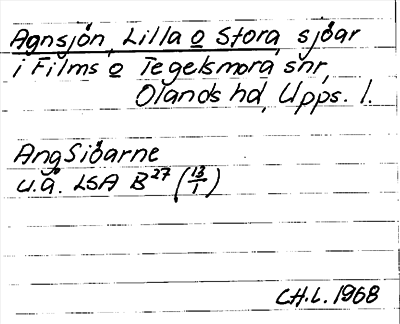 Agnsjön, Lilla o Stora, sjöar
i Films o Tegelsmora snr,
Olands hd, Upps. l.
AngSiöarne
u.å. LSA B27 (13/1)
CH.L. 1968